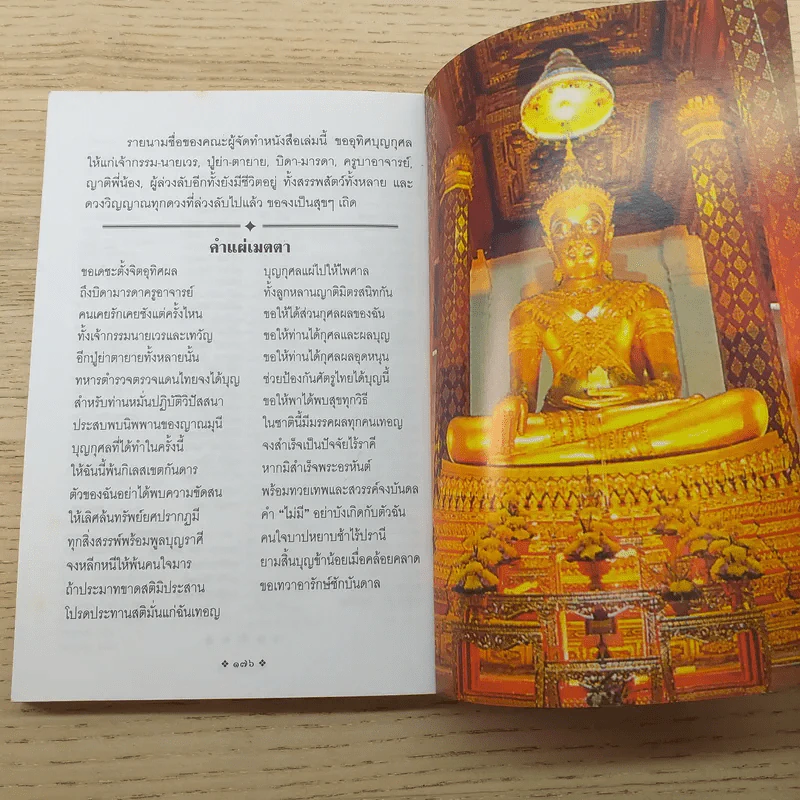 รายนามชื่อของคณะผู้จัดทำหนังสือเล่มนี้ ขออุทิศบุญกุศล
ให้แก่เจ้ากรรม-นายเวร, ปู่ย่า-ตายาย, บิดา-มารดา, ครูบาอาจารย์,
ญาติพี่น้อง, ผู้ล่วงลับอีกทั้งยังมีชีวิตอยู่ ทั้งสรรพสัตว์ทั้งหลาย และ
ดวงวิญญาณทุกดวงที่ล่วงลับไปแล้ว ขอจงเป็นสุขๆ เถิด
คำแผ่เมตตา
ขอเดชะตั้งจิตอุทิศผล บุญกุศลแผ่ไปให้ไพศาล
ถึงบิดามารดาครูอาจารย์ ทั้งลูกหลานญาติมิตรสนิทกัน
คนเคยรักเคยชังแต่ครั้งไหน ขอให้ได้ส่วนกุศลผลของฉัน
ทั้งเจ้ากรรมนายเวรและเทวัญ ขอให้ท่านได้กุศลและผลบุญ
อีกปู่ย่าตายายทั้งหลายนั้น ขอให้ท่านได้กุศลผลอุดหนุน
ทหารตำรวจตรวจแดนไทยจงได้บุญ ช่วยป้องกันศัตรูไทยได้บุญนี้
สำหรับท่านหมั่นปฏิบัติวิปัสสนา ขอให้พาได้พบสุขทุกวิธี
ประสบพบนิพพานของญาณมุนี ในชาตินี้มีมรรคผลทุกคนเทอญ
บุญกุศลที่ได้ทำในครั้งนี้ จงสำเร็จเป็นปัจจัยไร้ราคี
ให้ฉันนี้พ้นกิเลสเขตกันดาร หากมิสำเร็จพระอรหันต์
ตัวของฉันอย่าได้พบความขัดสน พร้อมทวยเทพและสวรรค์จงบันดล
ให้เลิศล้นทรัพย์ยศปรากฏมี คำ "ไม่มี" อย่าบังเกิดกับตัวฉัน
ทุกสิ่งสรรพ์พร้อมพูลบุญราศี คนใจบาปหยาบช้าไร้ปรานี
จงหลีกหนีให้พ้นคนใจมาร ยามสิ้นบุญข้าน้อยเมื่อคล้อยคลาด
ถ้าประมาทขาดสติมิประสาน ขอเทวาอารักษ์ชักบันดาล
โปรดประทานสติมั่นแก่ฉันเทอญ
๑๗๖